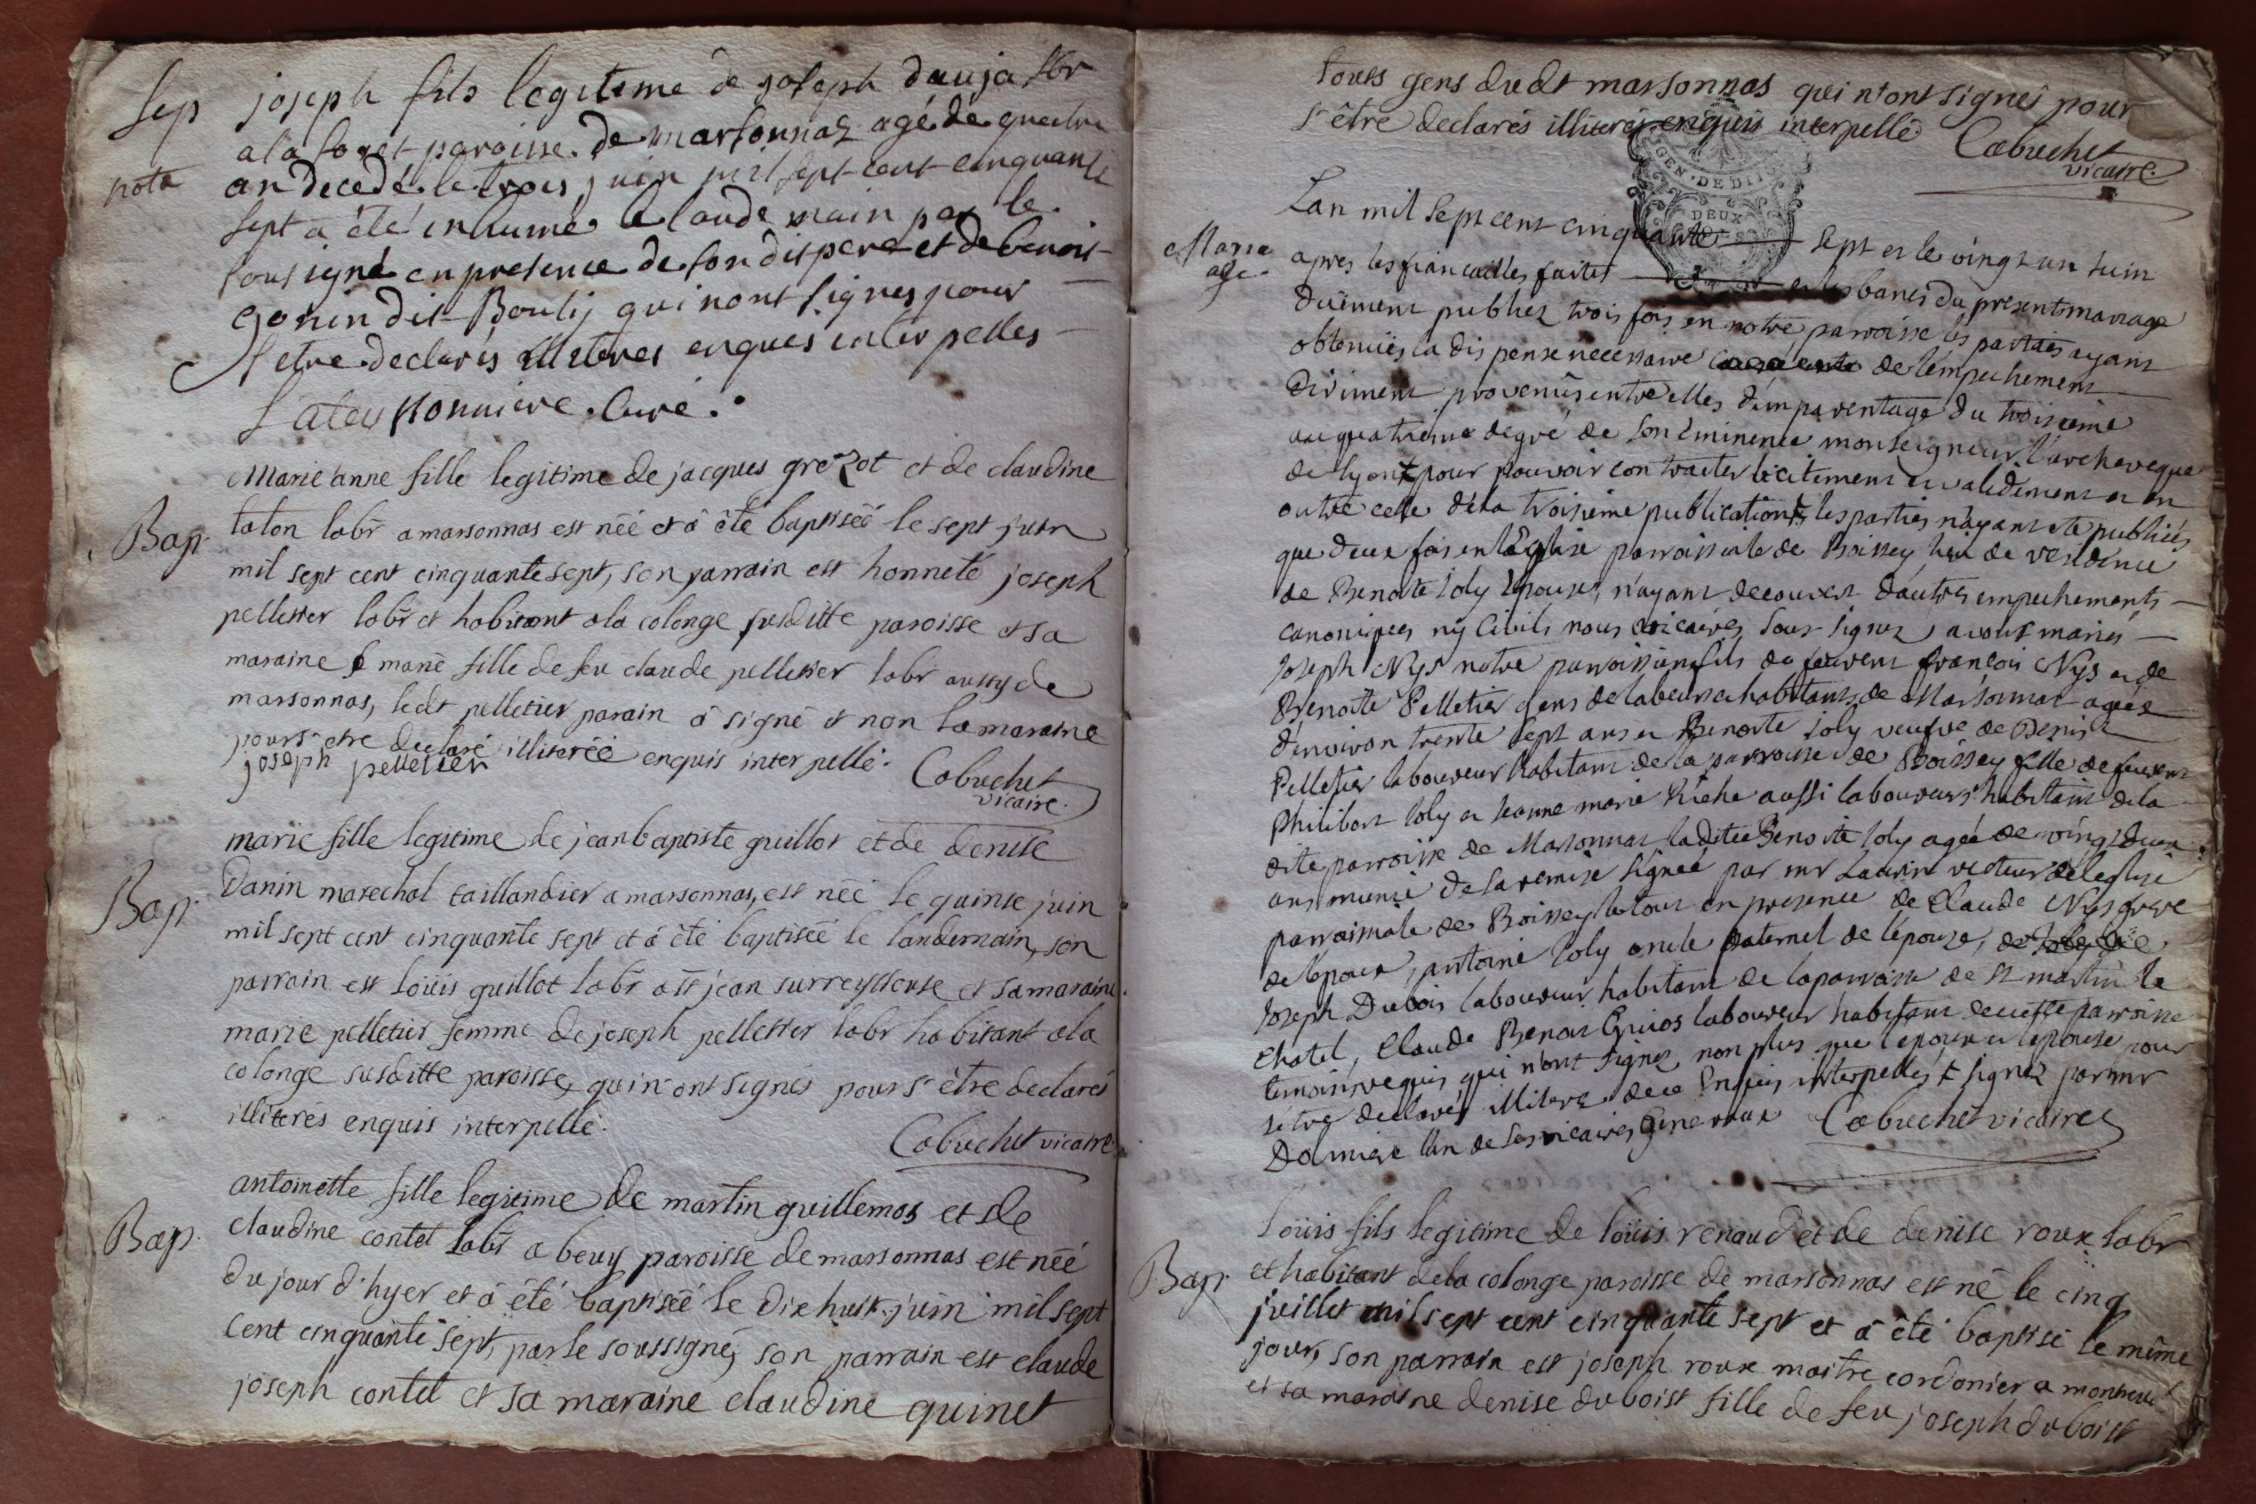 Sep joseph fils legitime de joseph daujat lbr
a la foret paroisse de marsonnaz agé de quatre
nota an decedé le trois juin mil sept cent cinquante
sept a été inhumé le laude main par le
sousigné en presence de son dit pere et de benoit
gonin dit Bouly qui nont signes pour
s'etre declarés illiteres enques interpelles
curé
Marie anne fille legitime de jacques grezot et de claudine
Bap. taton labr a marsonnas est néé et á êté baptiséé le sept juin
mil sept cent cinquante sept, son parrain est honneté joseph
pelletier labr et habitant a la colonge susditte paroisse et sa
maraine marie fille de feu claude pelletier labr aussy de
marsonnas, ledt pelletier parain á signé et non la maraine
pour s'etre declaré illiteréé enquis interpellé.
joseph pelletier Cabuchet
vicaire.
marie fille legitime de jean baptiste guillot et de denise
Bap. Danin marechal taillandier a marsonnas, est néé le quinze juin
mil sept cent cinquante sept et á êté baptiséé le landemain, son
parrain est loüis guillot labr a st jean surreyssouse et sa maraine
marie pelletier femme de joseph pelletier labr habitant a la
colonge susditte paroisse, qui n'ont signés pour s'être declarés
illiterés enquis interpellé.
Cabuchet vicaire
antoinette fille legitime de martin guillemos et de
Bap. claudine contet labr a beuy paroisse de marsonnas est néé
du jour d'hyer et á êté baptiséé le dix huit juin mil sept
cent cinquante sept, par le soussigné, son parrain est claude
joseph contet et sa maraine claudine quinet
tous gens dudt marsonnas qui n'ont signés pour
s'être declarés illiterés enquis interpellé
Cabuchet
vicaire.
GEN. DE
DEUX
Lan mil sept cent cinquante sept et le vingt un juin
Maria
age. apres les fiancailles faites et les bancs du present mariage
duëment publiez trois fois en notre parroisse les parties ayant
obtenuës la dispense necessaire de l'empechement
diriment provenus entre elles d'un parentage du troisieme
au quatrieme degré de son Eminence monseigneur l'archeveque
de lyon pour pouvoir contracter licitement et validement et en
outre celle de la troisieme publication les parties n'ayant eté publiés
que deux fois en l'Eglise parroissiale de Boissey lieu de
de Benoite Joly l'epouse, n'ayant decouvert d'autres empechements
canoniques ny civils nous vicaires sous signez avons mariés
Joseph Nys notre parroissien fils de feuvent françois Nys et de
Benoite Pelletier gens de labeur et habitants de Marsonnas agés
d'environ trente sept ans et Benoite Joly veufve de Denis
Pelletier laboureur habitant de la parroisse de Boissey fille de feuvent
Philibert Joly et Jeanne marie aussi laboureurs habitant de la
dite parroisse de Marsonnas ladite Benoite Joly agée de vingt deux
ans munie de la remise signeé par mr recteur de l'eglise
parroissiale de Boissey le tout en presence de Claude Nys frere
de l'epoux, antoine Joly oncle paternel de l'épouze,
Joseph Dubois laboureur habitant de la parroisse de st martin le
chatel, Claude Benoit laboureur habitant de cette parroisse
temoins requis qui n'ont signez non plus que l'epoux et l'epouse pour
s'etre declarés illiteré de ce enquis interpellés signez par mr
l'un de ses vicaires generaux Cabuchet vicaire
Loüis fils legitime de loüis renaud et de denise roux labr
Bap. et habitant de la colonge paroisse de marsonnas est né le cinq
juillet mil sept cent cinquante sept et á êté baptisé le même
jour, son parrain est joseph roux maitre cordonier a
et sa maraine denise duboist fille de feu joseph duboist